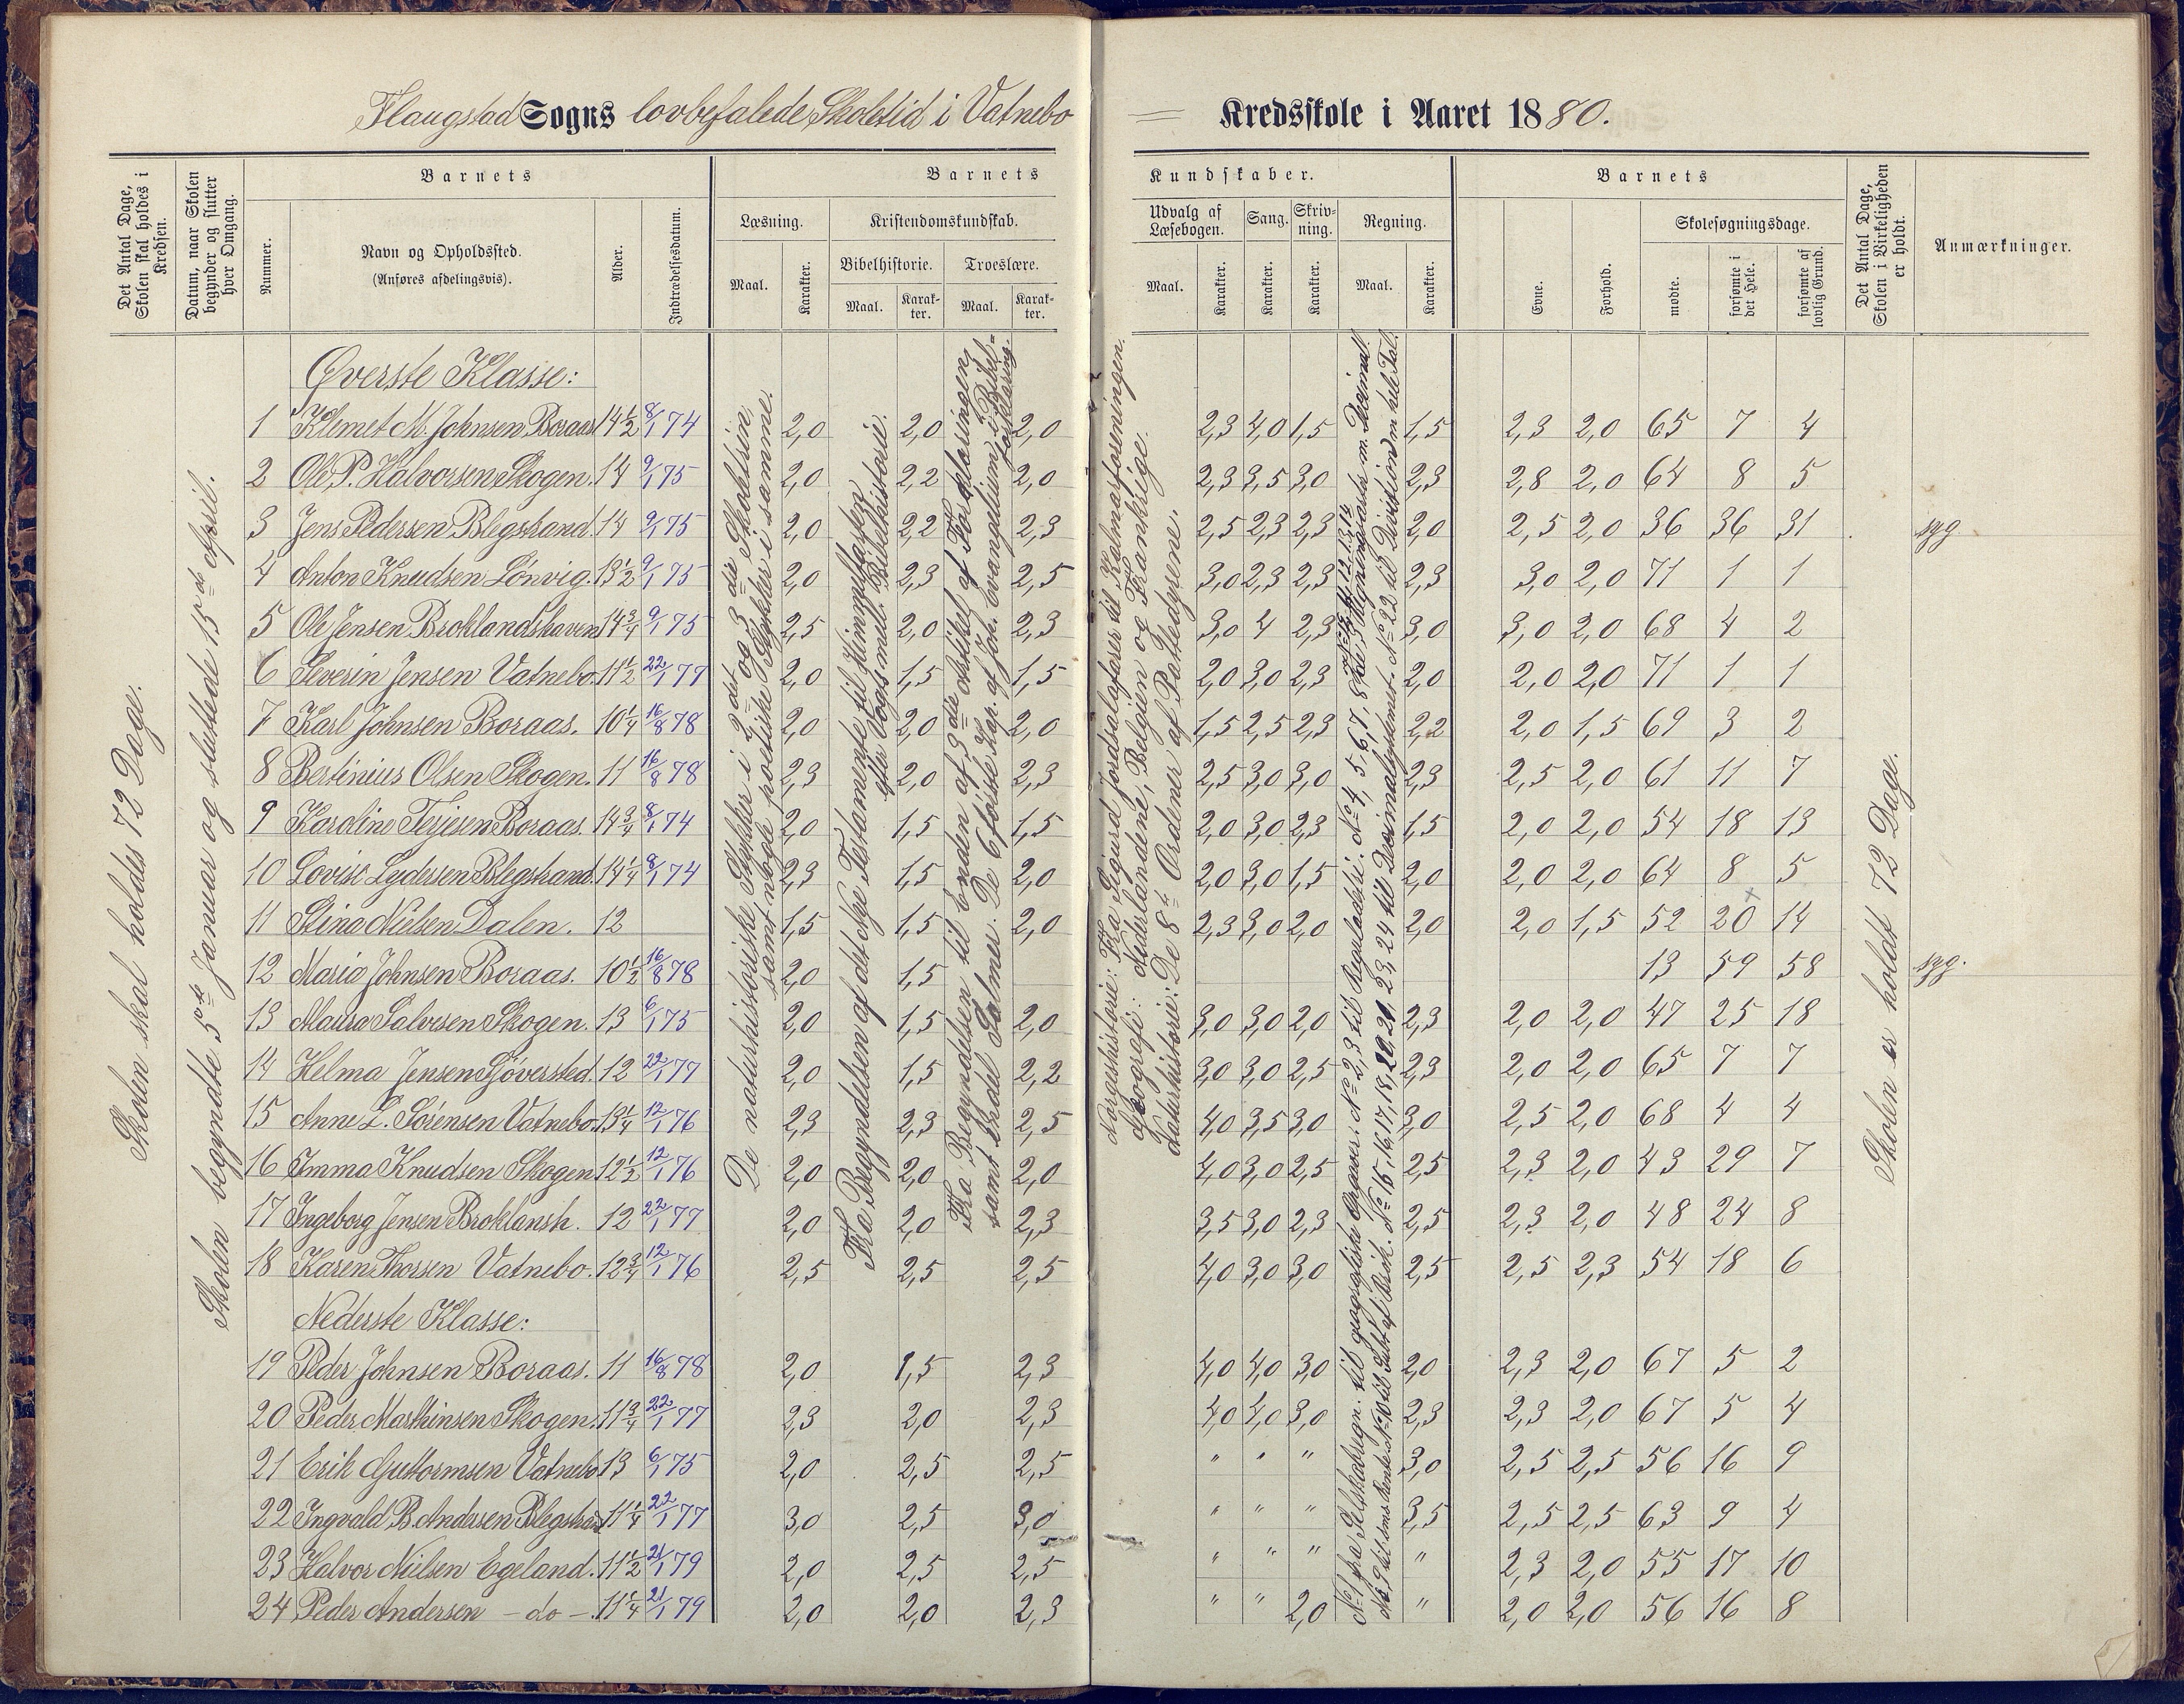 Flaugstad Sogns lovbefalede Skoletid i Vatnebo = Kredsskole i Aaret 1880.
Det Antal Dage, Skolen skal holdes i Kredsen.
Datum, naar Skolen begynder og slutter hver Omgang.
Barnets
Nummer.
Navn og Opholdssted.
(Anføres afdelingsvis).
Alder.
Indtrædelsesdatum.
Barnets Kundskaber.
Læsning.
Maal.
Karakter.
Kristendomskundskab.
Bibelhistorie.
Maal.
Karakter.
Troeslære.
Maal.
Karakter.
Udvalg af Læsebogen.
Maal.
Karakter.
Sang.
Karakter.
Skrivning.
Karakter.
Regning.
Maal.
Karakter.
Barnets
Evne.
Forhold.
Skolesøgningsdage.
mødte.
forsømte i det Hele.
forsømte af lovlig Grund.
Det Antal Dage, Skolen i Virkeligheden er holdt.
Anmærkninger.
Skolen skal holdes 72 Dage.
Skolen begyndte 5te Januar og sluttede 15de April.
De naturhistoriske Stykker i 2det og 3die Skoletrin,
samt nogle poetiske Stykker i samme.
Fra Begyndelsen af det Nye Testamente til Himmelfarten
efter Vogts mell. Bibelhistorie.
Fra Begyndelsen til Enden af 3die Artikel af Forklaringen,
samt endel Salmer. De 6 første Kap. af Joh. Evangelium i Bibelforklaring.
Norgeshistorie: Fra Sigurd Jorsalafarer til Kalmarforeningen.
Geografi: Nederlandene, Belgien og Frankrige.
Naturhistorie: De 8te Ordener af Pattedyrene.
Skolen er holdt 72 Dage.
Øverste Klasse:
1 Klemet M. Johnsen Boraas 14 1/2 8/1 74 2,0 2,0 2,0 2,3 4,0 1,5 1,5 2,3 2,0 65 7 4
2 Ole P. Halvorsen Skogen. 14 9/1 75 2,0 2,2 2,0 2,3 3,5 3,0 2,3 2,8 2,0 64 8 5
3 Jens Pedersen Blegstrand. 14 9/1 75 2,0 2,2 2,3 2,5 2,3 2,3 2,0 2,5 2,0 36 36 31 syg.
4 Anton Knudsen Lönvig. 13 1/2 9/1 75 2,0 2,3 2,5 3,0 2,3 2,3 2,3 3,0 2,0 71 1 1
5 Ole Jensen Broklandshaven 14 3/4 9/1 75 2,5 2,0 2,3 3,0 4 2,3 3,0 3,0 2,0 68 4 2
6 Severin Jensen Vatnebo. 11 1/2 22/1 77 2,0 1,5 1,5 2,0 3,0 2,3 2,0 2,0 2,0 71 1 1
7 Karl Johnsen Boraas. 10 1/4 16/8 78 2,0 2,0 2,0 1,5 2,5 2,3 2,2 2,0 1,5 69 3 2
8 Bertinius Olsen Skogen. 11 16/8 78 2,3 2,0 2,3 2,5 3,0 3,0 2,3 2,5 2,0 61 11 7
9 Karoline Terjesen Boraas. 14 3/4 8/1 74 2,0 1,5 1,5 2,0 3,0 2,3 1,5 2,0 2,0 54 18 13
10 Lovise Lydersen Blegstrand. 14 1/4 8/1 74 2,3 1,5 2,0 2,0 3,0 1,5 2,0 2,0 2,0 64 8 5
11 Stina Nielsen Dalen. 12 1,5 1,5 2,0 2,3 3,0 2,0 2,0 2,0 1,5 52 20 14
12 Maria Johnsen Boraas. 10 1/2 16/8 78 2,0 1,5 13 59 58 syg.
13 Maura Salvesen Skogen. 13 6/1 75 2,0 1,5 2,0 3,0 3,0 2,0 2,3 2,0 2,0 47 25 18
14 Helma Jensen Sjöversted. 12 22/1 77 2,0 1,5 2,2 3,0 3,0 2,5 2,3 2,0 2,0 65 7 7
15 Anne L. Sörensen Vatnebo. 13 1/4 12/1 76 2,3 2,3 2,5 4,0 3,5 3,0 3,0 2,5 2,0 68 4 4
16 Emma Knudsen Skogen 12 1/2 12/1 76 2,0 2,0 2,0 4,0 3,0 2,5 2,5 2,3 2,0 43 29 7
17 Ingeborg Jensen Broklansh. 12 22/1 77 2,0 2,0 2,3 3,5 3,0 2,3 2,5 2,3 2,0 48 24 8
18 Karen Thorsen Vatnebo. 12 3/4 12/1 76 2,5 2,5 2,5 4,0 3,0 3,0 2,5 2,5 2,3 54 18 6
Nederste Klasse:
19 Peder Johnsen Boraas. 11 16/8 78 2,0 1,5 2,3 4,0 4,0 3,0 2,0 2,3 2,0 67 5 2
20 Peder Martinsen Skogen. 11 3/4 22/1 77 2,3 2,0 2,3 4,0 4,0 3,0 2,3 2,3 2,0 67 5 4
21 Erik Guttormsen Vatnebo 13 6/1 75 2,0 2,5 2,5 " " " 3,0 2,5 2,5 56 16 9
22 Ingvald B. Andersen Blegstrand 11 1/4 22/1 77 3,0 2,5 3,0 " " " 3,5 2,5 2,5 63 9 4
23 Halvor Nielsen Egeland. 11 1/2 21/1 79 2,0 2,5 2,5 " " " " 2,3 2,0 55 17 10
24 Peder Andersen – do –. 11 1/4 21/1 79 2,0 2,0 2,3 " " 2,0 " 2,0 2,0 56 16 8